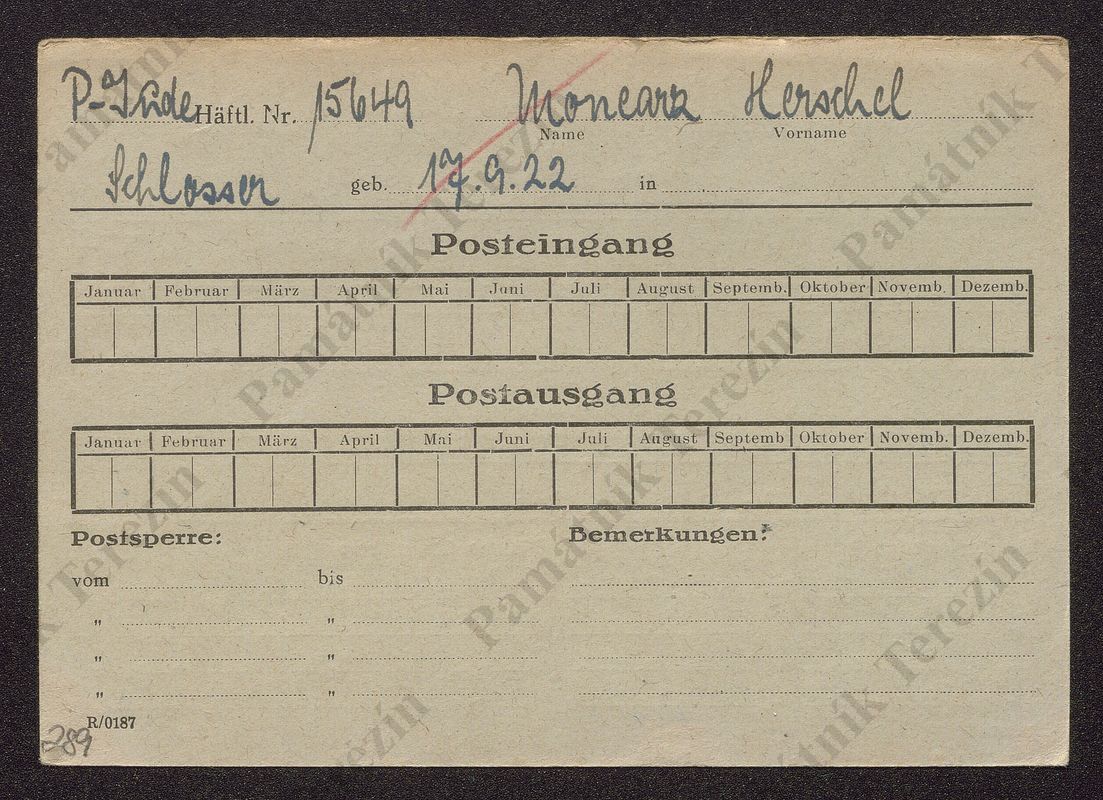 P-Jude Häftl. Nr. 15649 Moncarz Herschel
Name Vorname
Schlosser geb. 17.9.22 in
Posteingang
Januar Februar März April Mai Juni Juli August Septemb. Oktober Novemb. Dezemb.
Postausgang
Januar Februar März April Mai Juni Juli August Septemb Oktober Novemb. Dezemb.
Postsperre: Bemerkungen:
vom bis
" "
" "
" "
R/0187
289
Památník Terezín